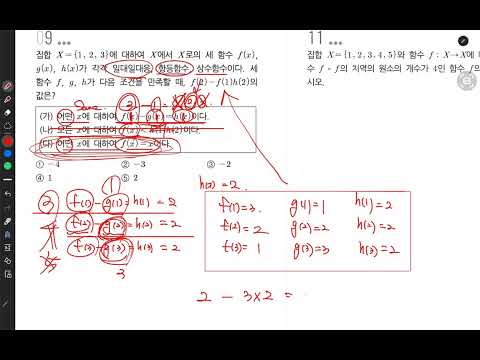 09
집합 X={1, 2, 3}에 대하여 X에서 X로의 세 함수 f(x),
g(x), h(x)가 각각 일대일대응, 항등함수, 상수함수이다. 세
함수 f, g, h가 다음 조건을 만족할 때, f(2)-f(1)h(2)의
값은?
(가) 어떤 x에 대하여 f(x)-g(x)=h(x)이다.
(나) 모든 x에 대하여
(다) 어떤 x에 대하여 f(x)=x이다.
① -4 ② -3 ③ -2
④ 1 ⑤ 2
11
집합 X={1, 2, 3, 4, 5}와 함수 f : X→X에 대
수 f∘f의 치역의 원소의 개수가 4인 함수 f의
시오.
h(2)=2.
f(1)-g(1)=h(1)=2
f(2)-g(2)=h(2)=2
f(3)-g(3)=h(3)=2
3
f(1)=3. g(1)=1 h(1)=2
f(2)=2 g(2)=2 h(2)=2
f(3)=1 g(3)=3 h(3)=2
2 - 3×2 =